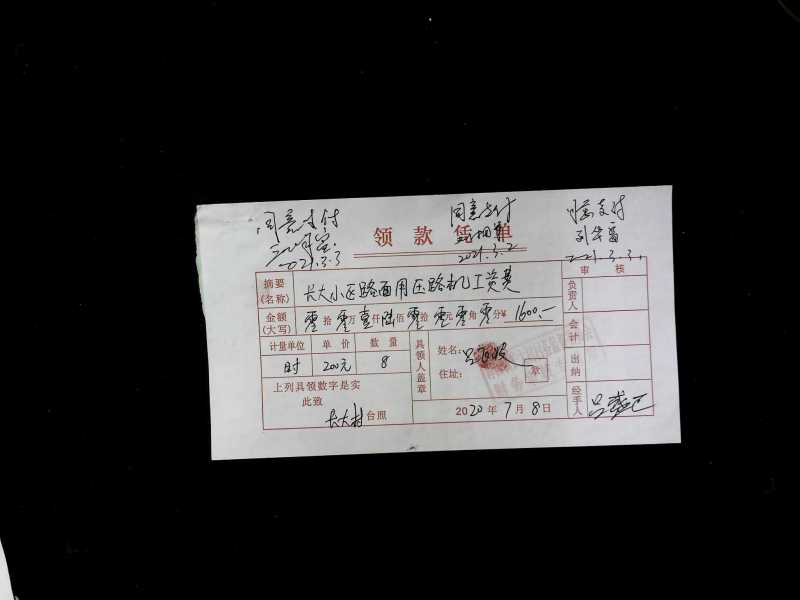 同意支付 同意支付 同意支付
2021.3.3 2021.3.2 2021.3.3.
领款凭单
审核
摘要(名称) 长大小区路面用压路机工资费
金额(大写) 零拾零万壹仟陆佰零拾零元零角零分¥ 1600.—
计量单位 单价 数量
时 200元 8
上列具领数字是实
此致
长大村台照
具领人盖章
姓名:吕
住址:
章
2020年7月8日
负责人
会计
出纳
经手人 吕